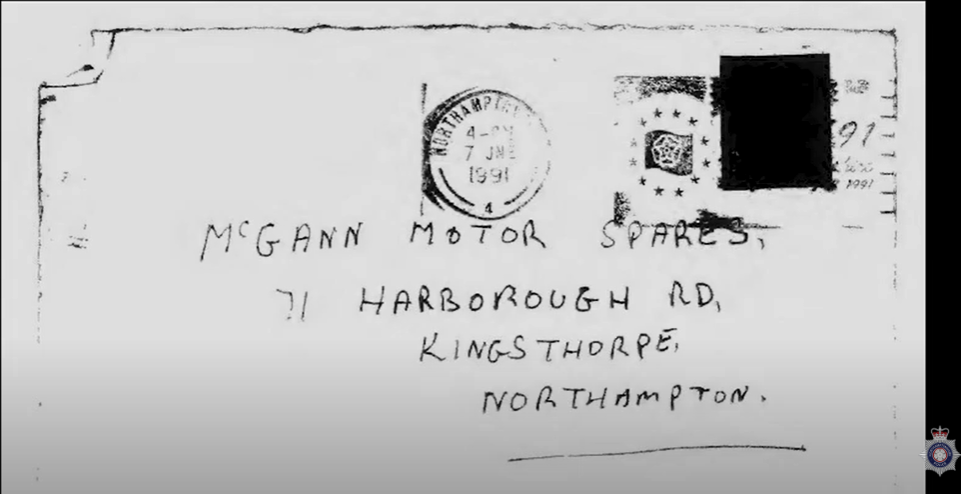 NORTHAMPTON
4-PM
7 JNE
1991
4
91
1991
McGANN MOTOR SPARES,
71 HARBOROUGH RD,
KINGSTHORPE,
NORTHAMPTON.